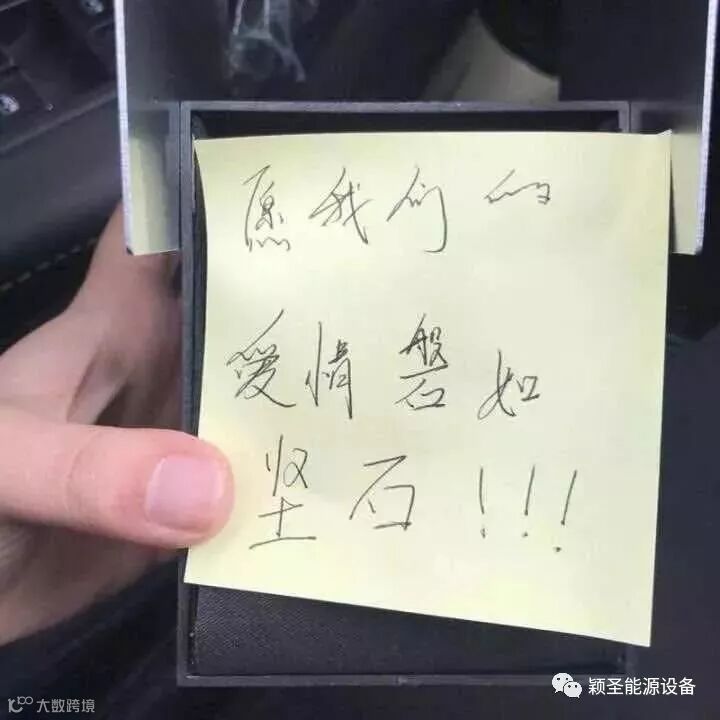 愿我们的
爱情磐如
坚石!!!
颖圣能源设备
大数跨境